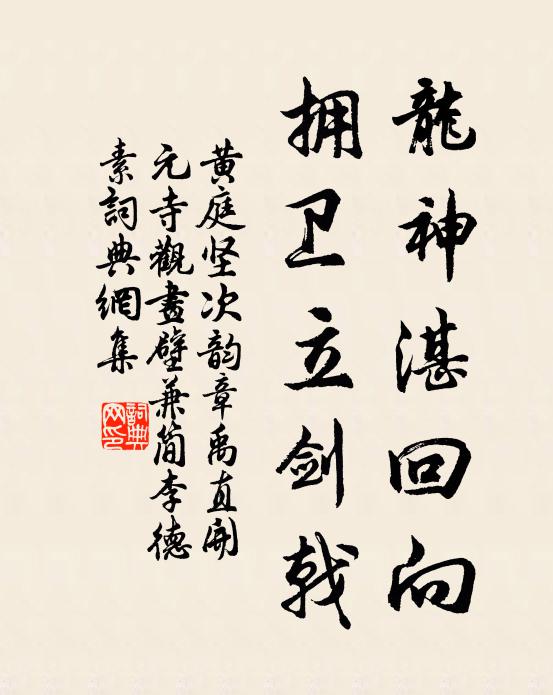 龍神湛回向
拥卫立剑戟
黄庭坚次韵章禹直開
元寺觀畫壁兼简李德
素詞典網集
詞典网印